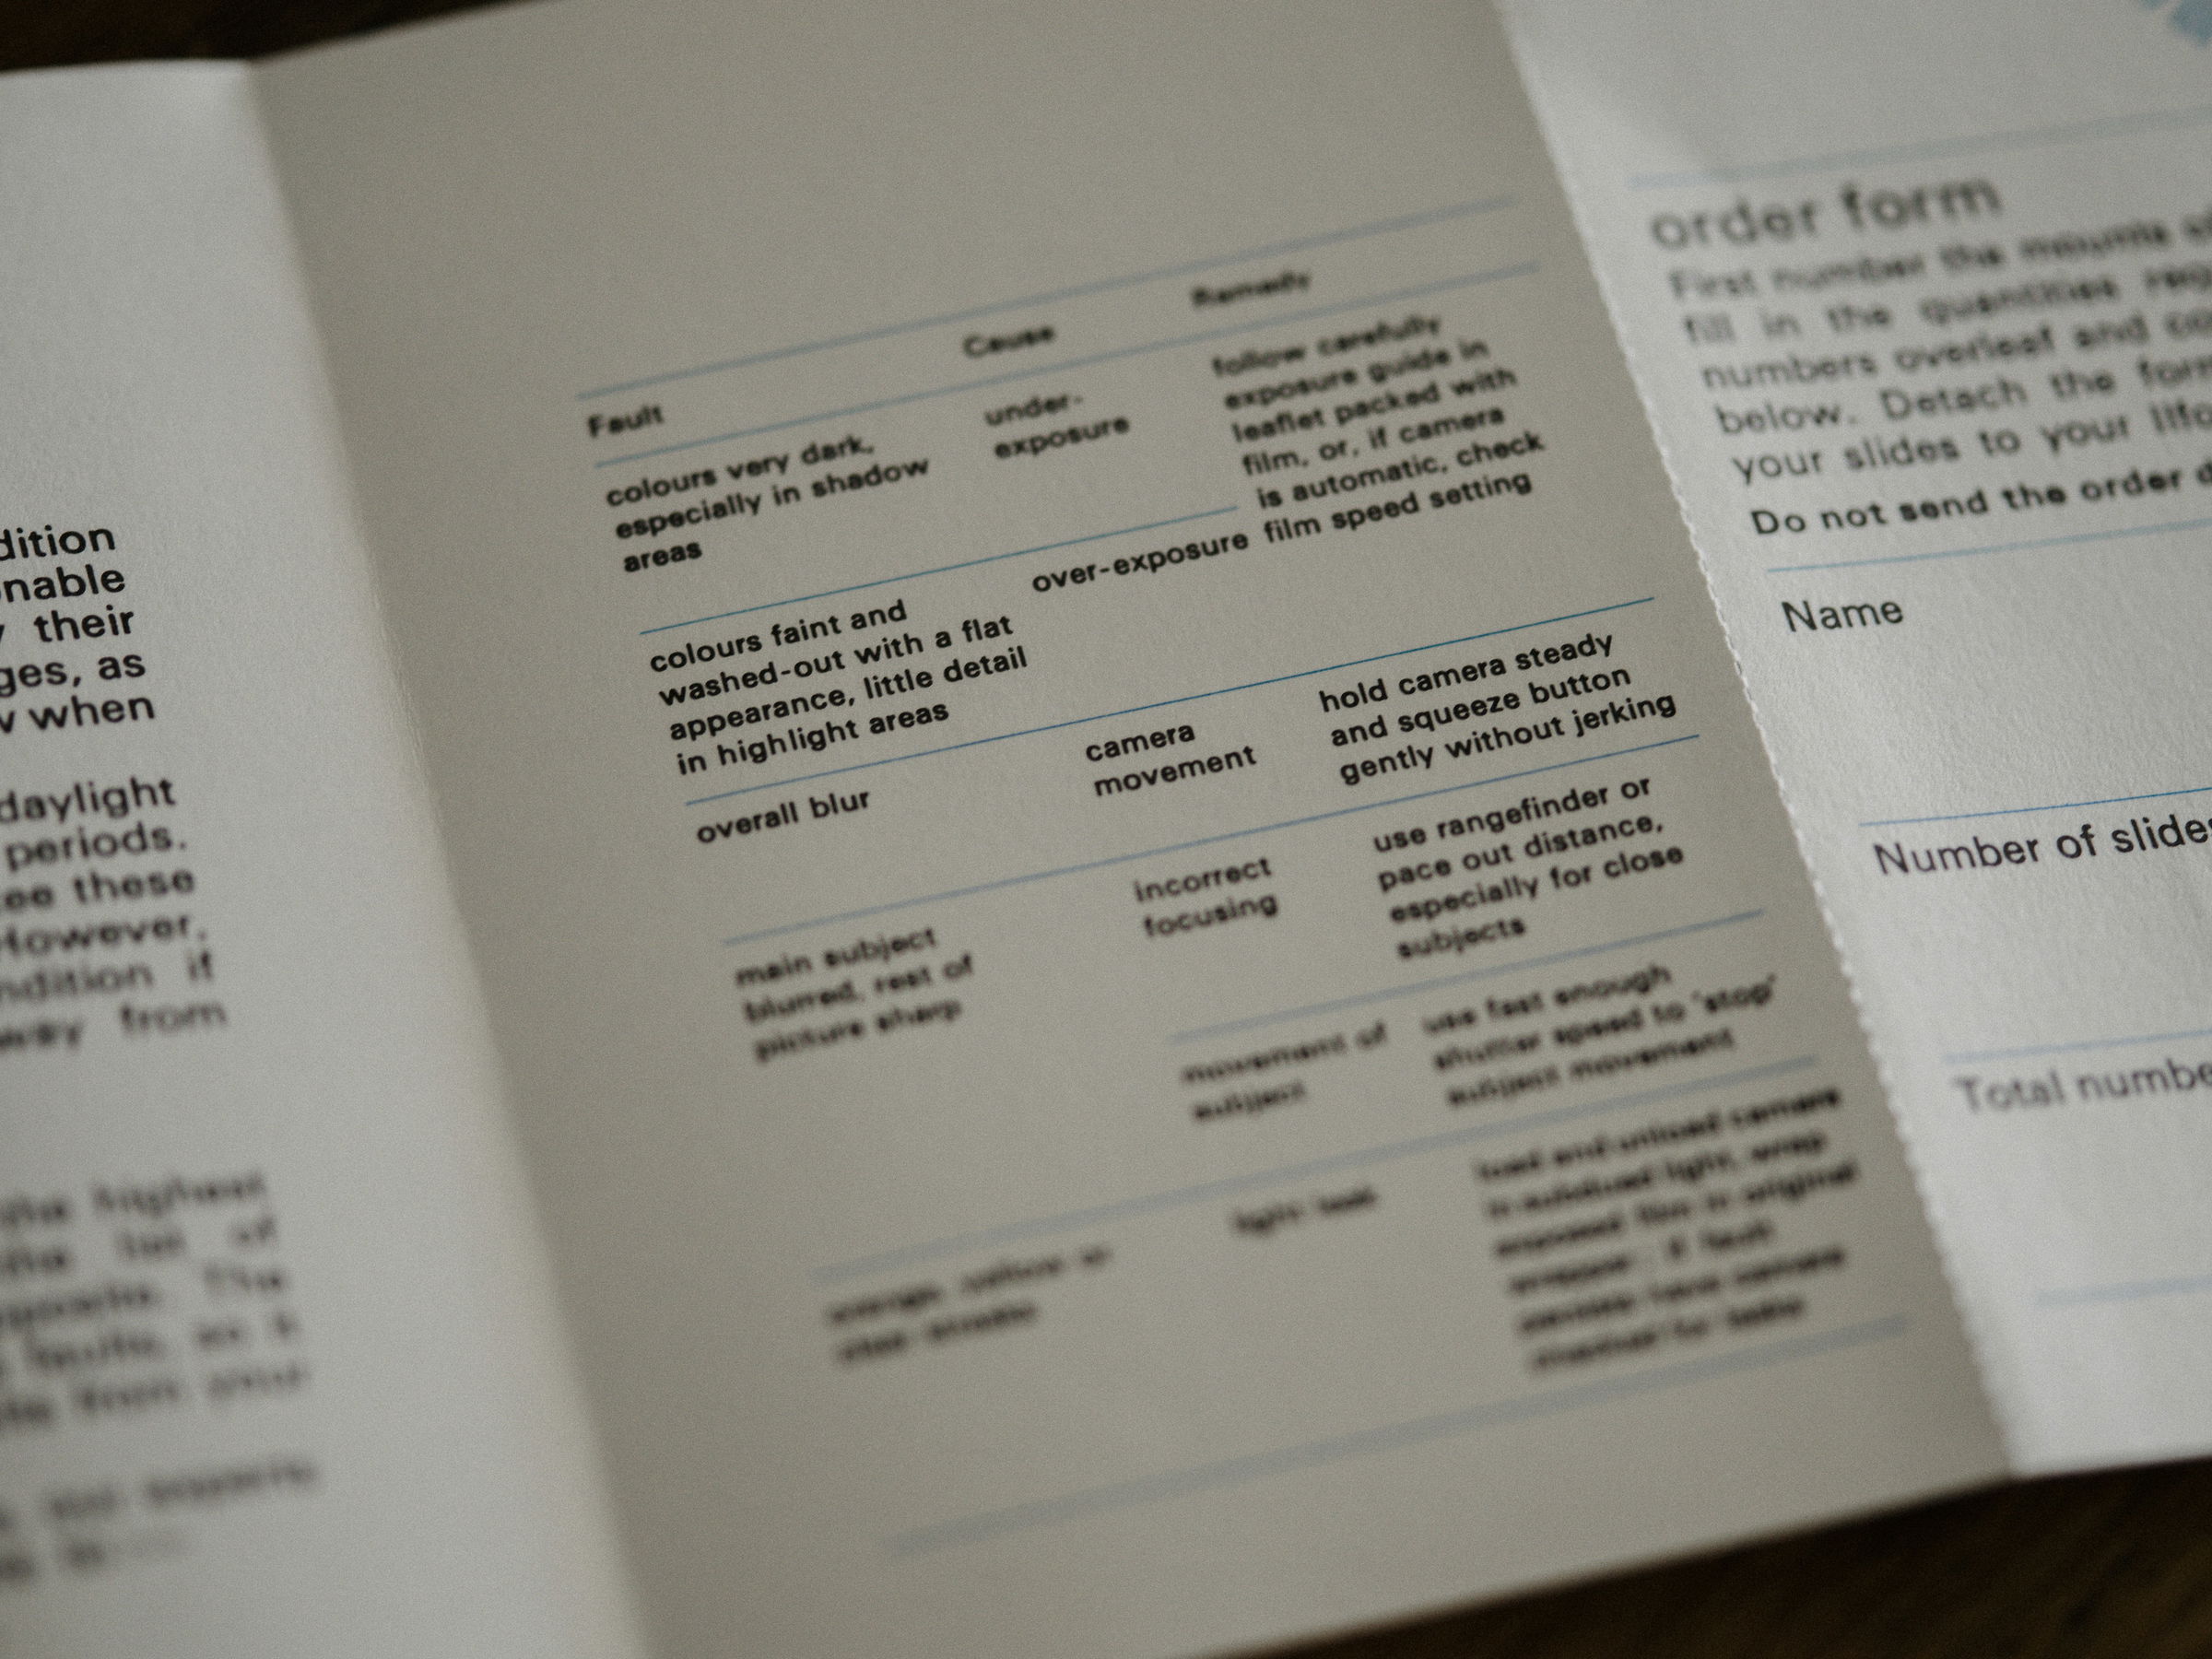 dition
nable
their
ges, as
when
daylight
periods.
these
However,
ndition if
from
the highest
the list of
The
faults, so
from your
Fault
Cause
Remedy
colours very dark,
especially in shadow
areas
under-
exposure
follow carefully
exposure guide in
leaflet packed with
film, or, if camera
is automatic, check
film speed setting
colours faint and
washed-out with a flat
appearance, little detail
in highlight areas
over-exposure
overall blur
camera
movement
hold camera steady
and squeeze button
gently without jerking
main subject
blurred, rest of
picture sharp
incorrect
focusing
use rangefinder or
pace out distance,
especially for close
subjects
movement of
subject
use fast enough
shutter speed to 'stop'
subject movement
orange, yellow or
light leak
load and unload camera
in subdued light, wrap
exposed film in original
if fault
have camera
order form
First number the mounts
fill in the quantities
numbers overleaf and
below. Detach the form
your slides to your
Do not send the order
Name
Number of slides
Total numbe